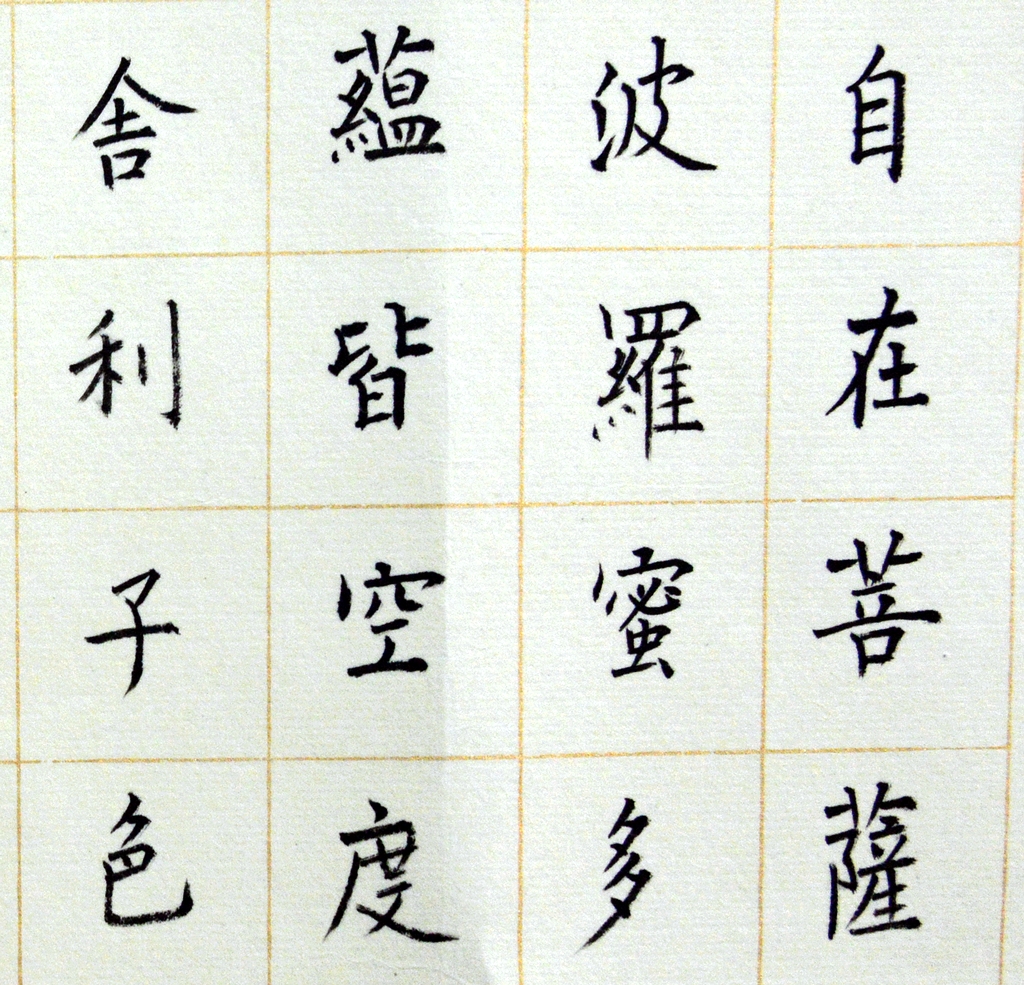 自在菩薩
波羅蜜多
蘊皆空度
舍利子色